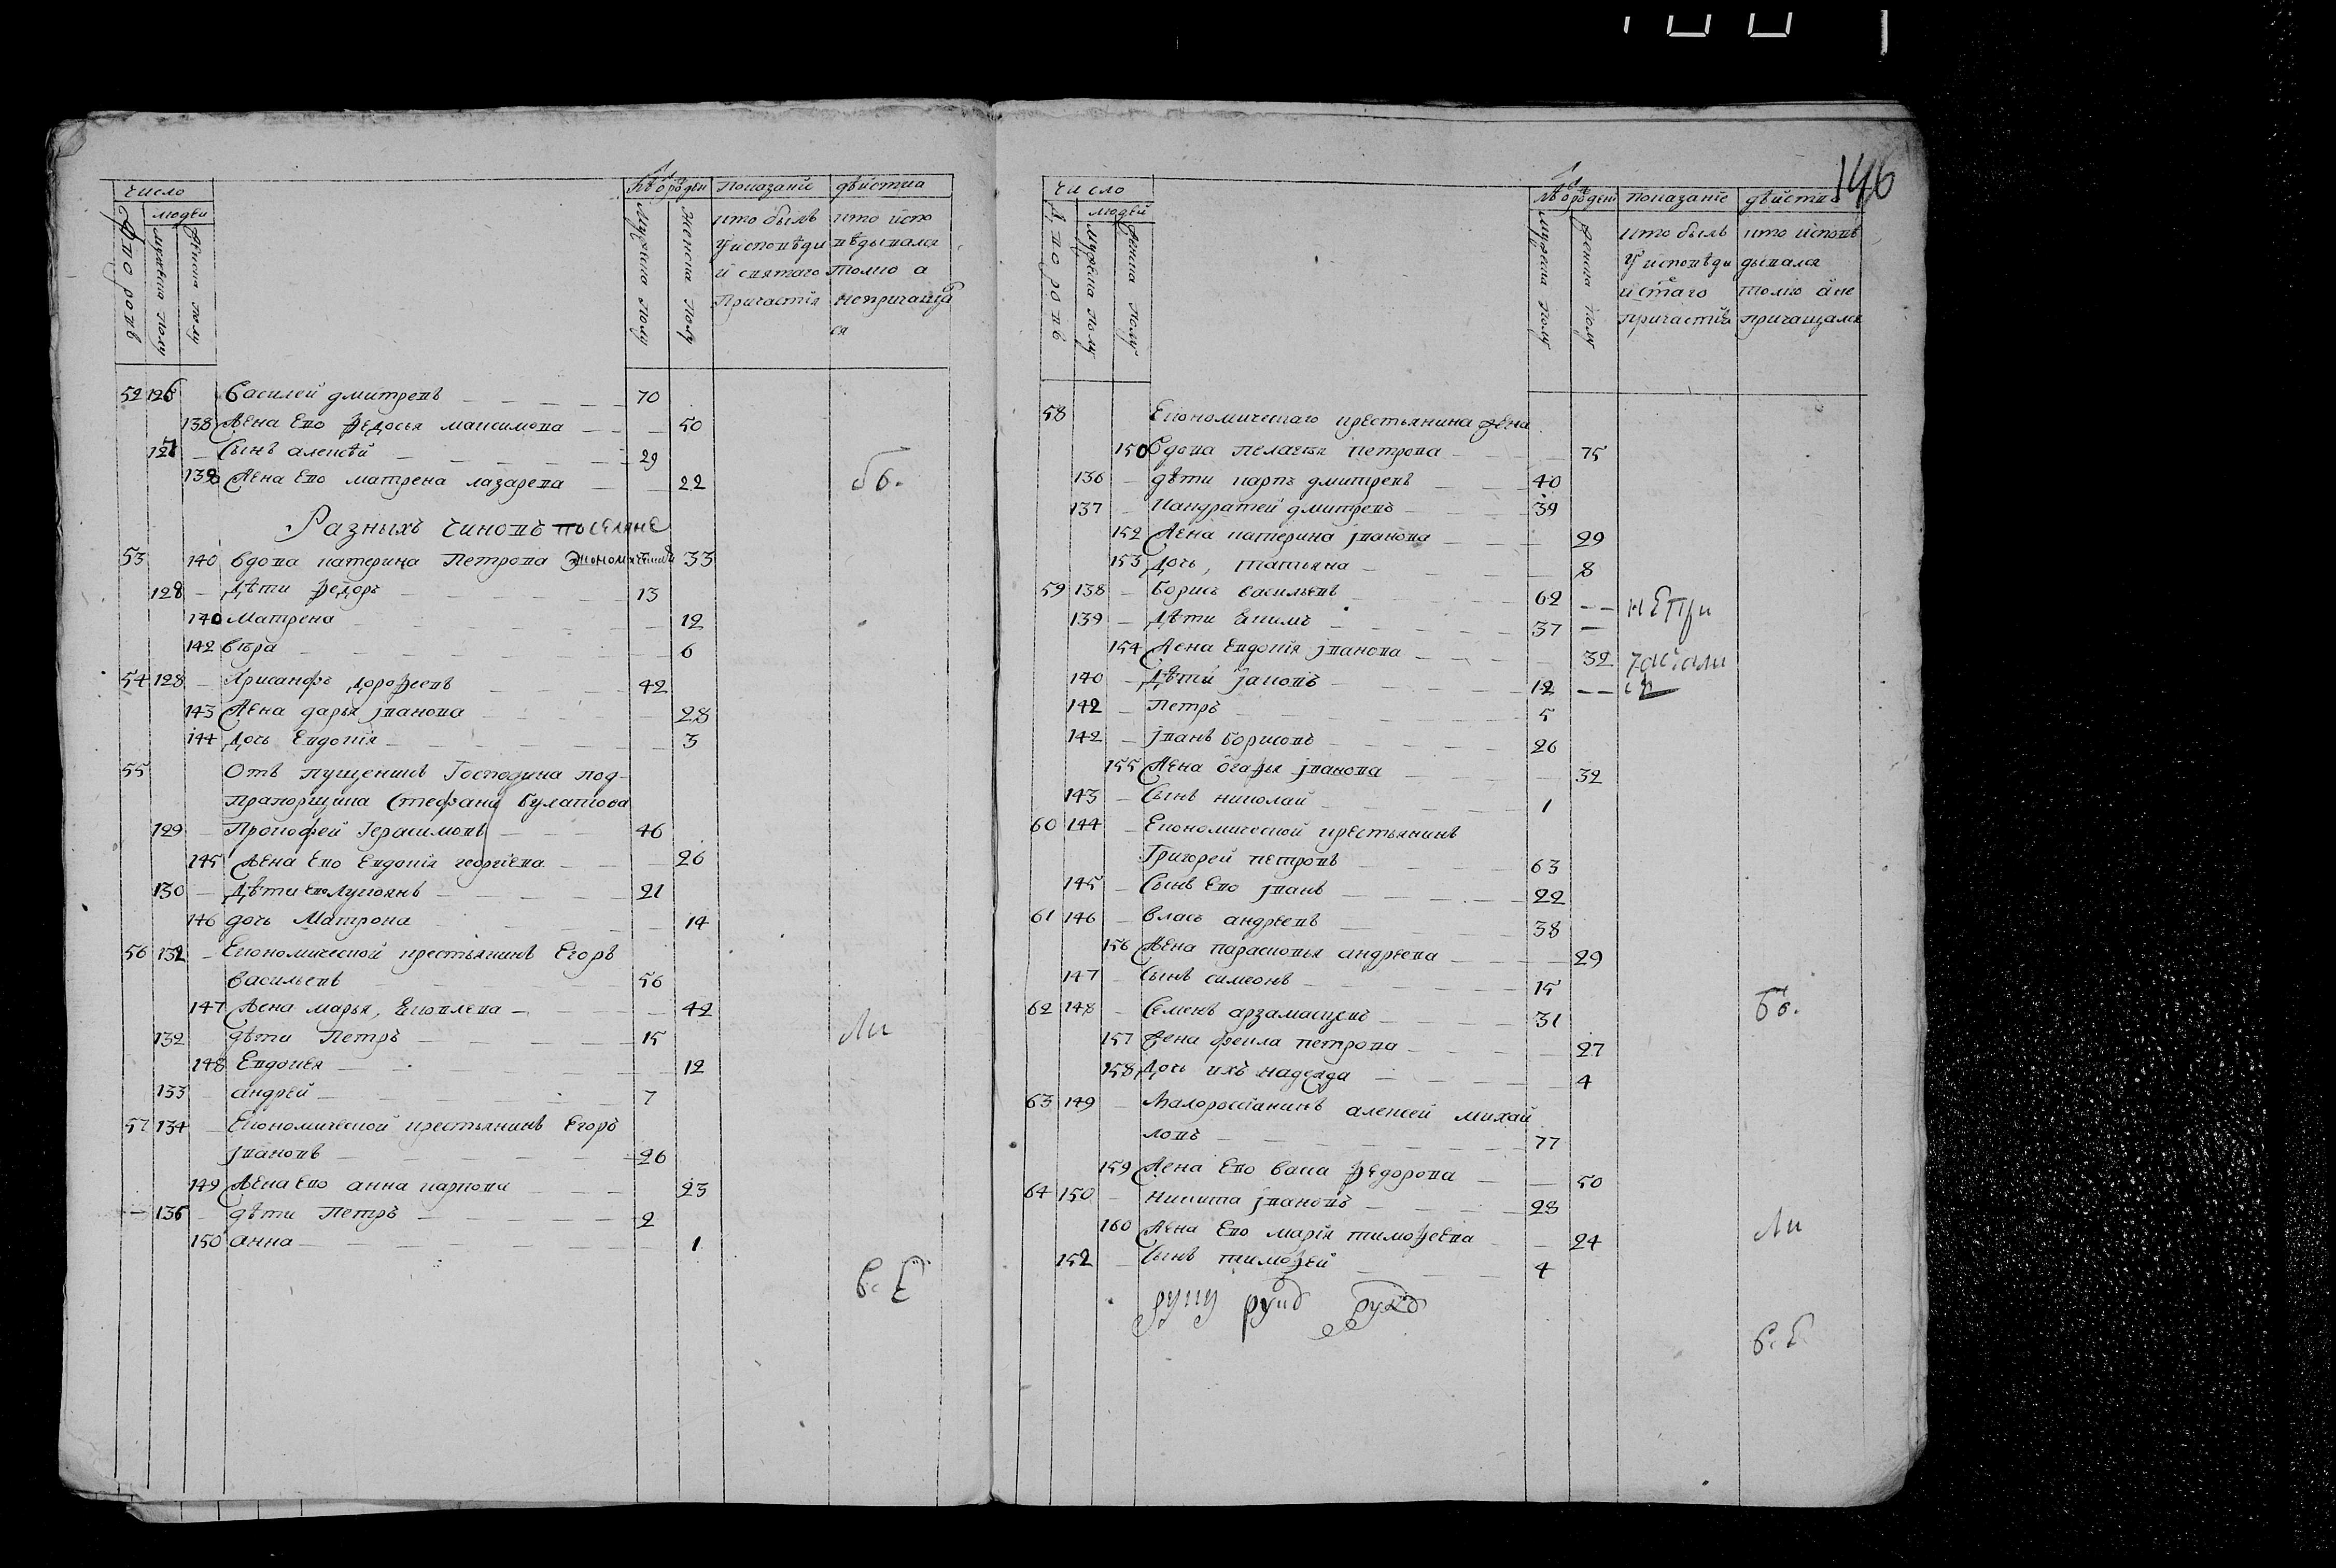 146
число
людей
Дворовъ
мужеска полу
женска полу
Лѣта от рожден
мужеска полу
женска полу
показаніе
дѣйства
кто былъ
у исповѣди
и святаго
причастія
кто испо
вѣдывался
токмо а
непричаща
ся
52 126 Василей дмитревъ 70
138 Жена Ево Федосья максимова 50
127 Сынъ алексѣй 29
139 Жена Ево матрена лазарева 22
Разныхъ чиновъ поселяне
53 140 вдова катерина Петрова Экономическа 33
128 Дѣти Федоръ 13
140 Матрена 12
142 вѣра 6
54 128 Хрисанфъ дорофеевъ 42
143 Жена дарья іванова 28
144 Дочь Евдокія 3
55 Отъ пущенникъ Господина под-
прапорщика Стефана Булатова
129 Прокофей Герасимовъ 46
145 Жена Ево Евдокія георгіева 26
130 Дѣти Ево Лукоянъ 21
146 дочь Матрона 14
56 132 Економической крестьянинъ Егоръ
васильевъ 56
147 Жена марья, Яковлева 42
132 дѣти Петръ 15
148 Евдокея 12
133 андрей 7
57 134 Економической крестьянинъ Егоръ
івановъ 26
149 Жена Ево анна карпова 23
135 дѣти Петръ 2
150 анна 1
число
людей
Дворовъ
мужеска полу
женска полу
Лѣта от рожден
мужеска полу
женска полу
показаніе
дѣйства
кто былъ
у исповѣди
и стаго
причастія
кто исповѣ
дывался
токмо а не
причащался
58 Економическаго крестьянина жена
150 вдова пелагея петрова 75
136 дѣти карпъ дмитревъ 40
137 Панкратей дмитревъ 39
152 Жена катерина іванова 29
153 Дочь, татьяна 8
59 138 Борисъ васильевъ 62 непри
139 Дѣти Екимъ 37
154 Жена Евдокія іванова 32 частали
140 Дѣти Іаковъ 12 сь
142 Петръ 5
142 іванъ борисовъ 26
155 Жена огафья іванова 32
143 Сынъ николай 1
60 144 Економической крестьянинъ
Григорей петровъ 63
145 Сынъ Ево іванъ 22
61 146 власъ андреевъ 38
156 Жена парасковья андреева 29
147 Сынъ симеонъ 15
62 148 Семенъ арзамасцевъ 31
157 Жена фекла петрова 27
158 Дочь ихъ надежда 4
63 149 Малороссіанинъ алексей михай
ловъ 77
159 Жена Ево васа Федорова 50
64 150 никита івановъ 28
160 Жена Ево марія тимофеева 24
152 Сынъ тимофей 4
руку